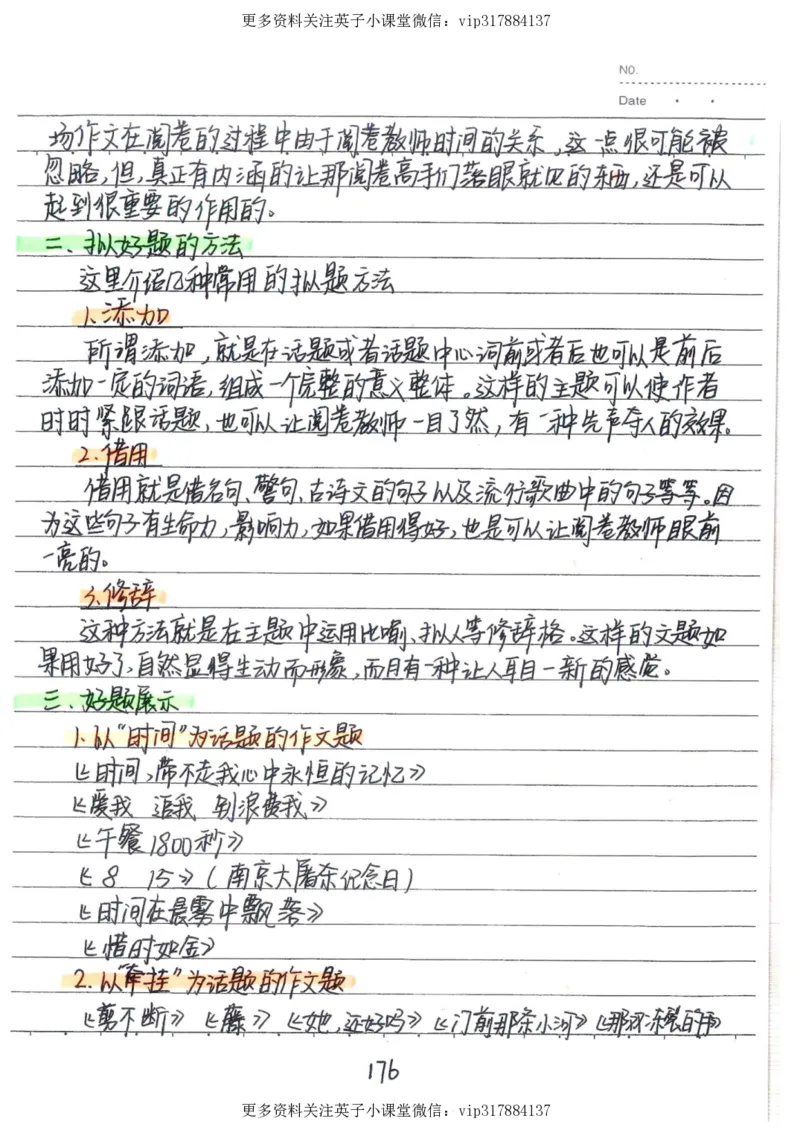 更多资料关注英子小课堂微信：vip317884137
NO.
Date
场作文在阅卷的过程中由于阅卷教师时间的关系，这一点很可能被
忽略，但，真正有内涵的让那阅卷高手们落眼就见的东西，还是可以
起到很重要的作用的。
二、拟好题的方法
这里介绍几种常用的拟题方法
1.添加
所谓添加，就是在话题或者话题中心词前或者后也可以是前后
添加一定的词语，组成一个完整的意义整体。这样的主题可以使作者
时时紧跟话题，也可以让阅卷教师一目了然，有一种先声夺人的效果。
2.借用
借用就是借名句、警句、古诗文的句子以及流行歌曲中的句子等等。因
为这些句子有生命力，影响力，如果借用得好，也是可以让阅卷教师眼前
一亮的。
3.修辞
这种方法就是在主题中运用比喻、拟人等修辞格。这样的文题如
果用好了，自然显得生动而形象，而且有一种让人耳目一新的感觉。
三、好题展示
1.以“时间”为话题的作文题
《时间，带不走我心中永恒的记忆》
《爱我 追我 别浪费我》
《午餐1800秒》
《8 15》（南京大屠杀纪念日）
《时间在晨雾中飘落》
《惜时如金》
2.以“牵挂”为话题的作文题
《剪不断》《藤》《她，还好吗》《门前那条小河》《那冻裂的手》
176
更多资料关注英子小课堂微信：vip317884137